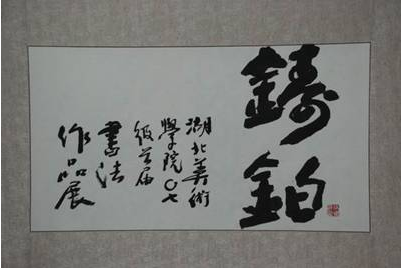 鑄鉑
湖北美術
學院〇七
級首届
書法
作品展